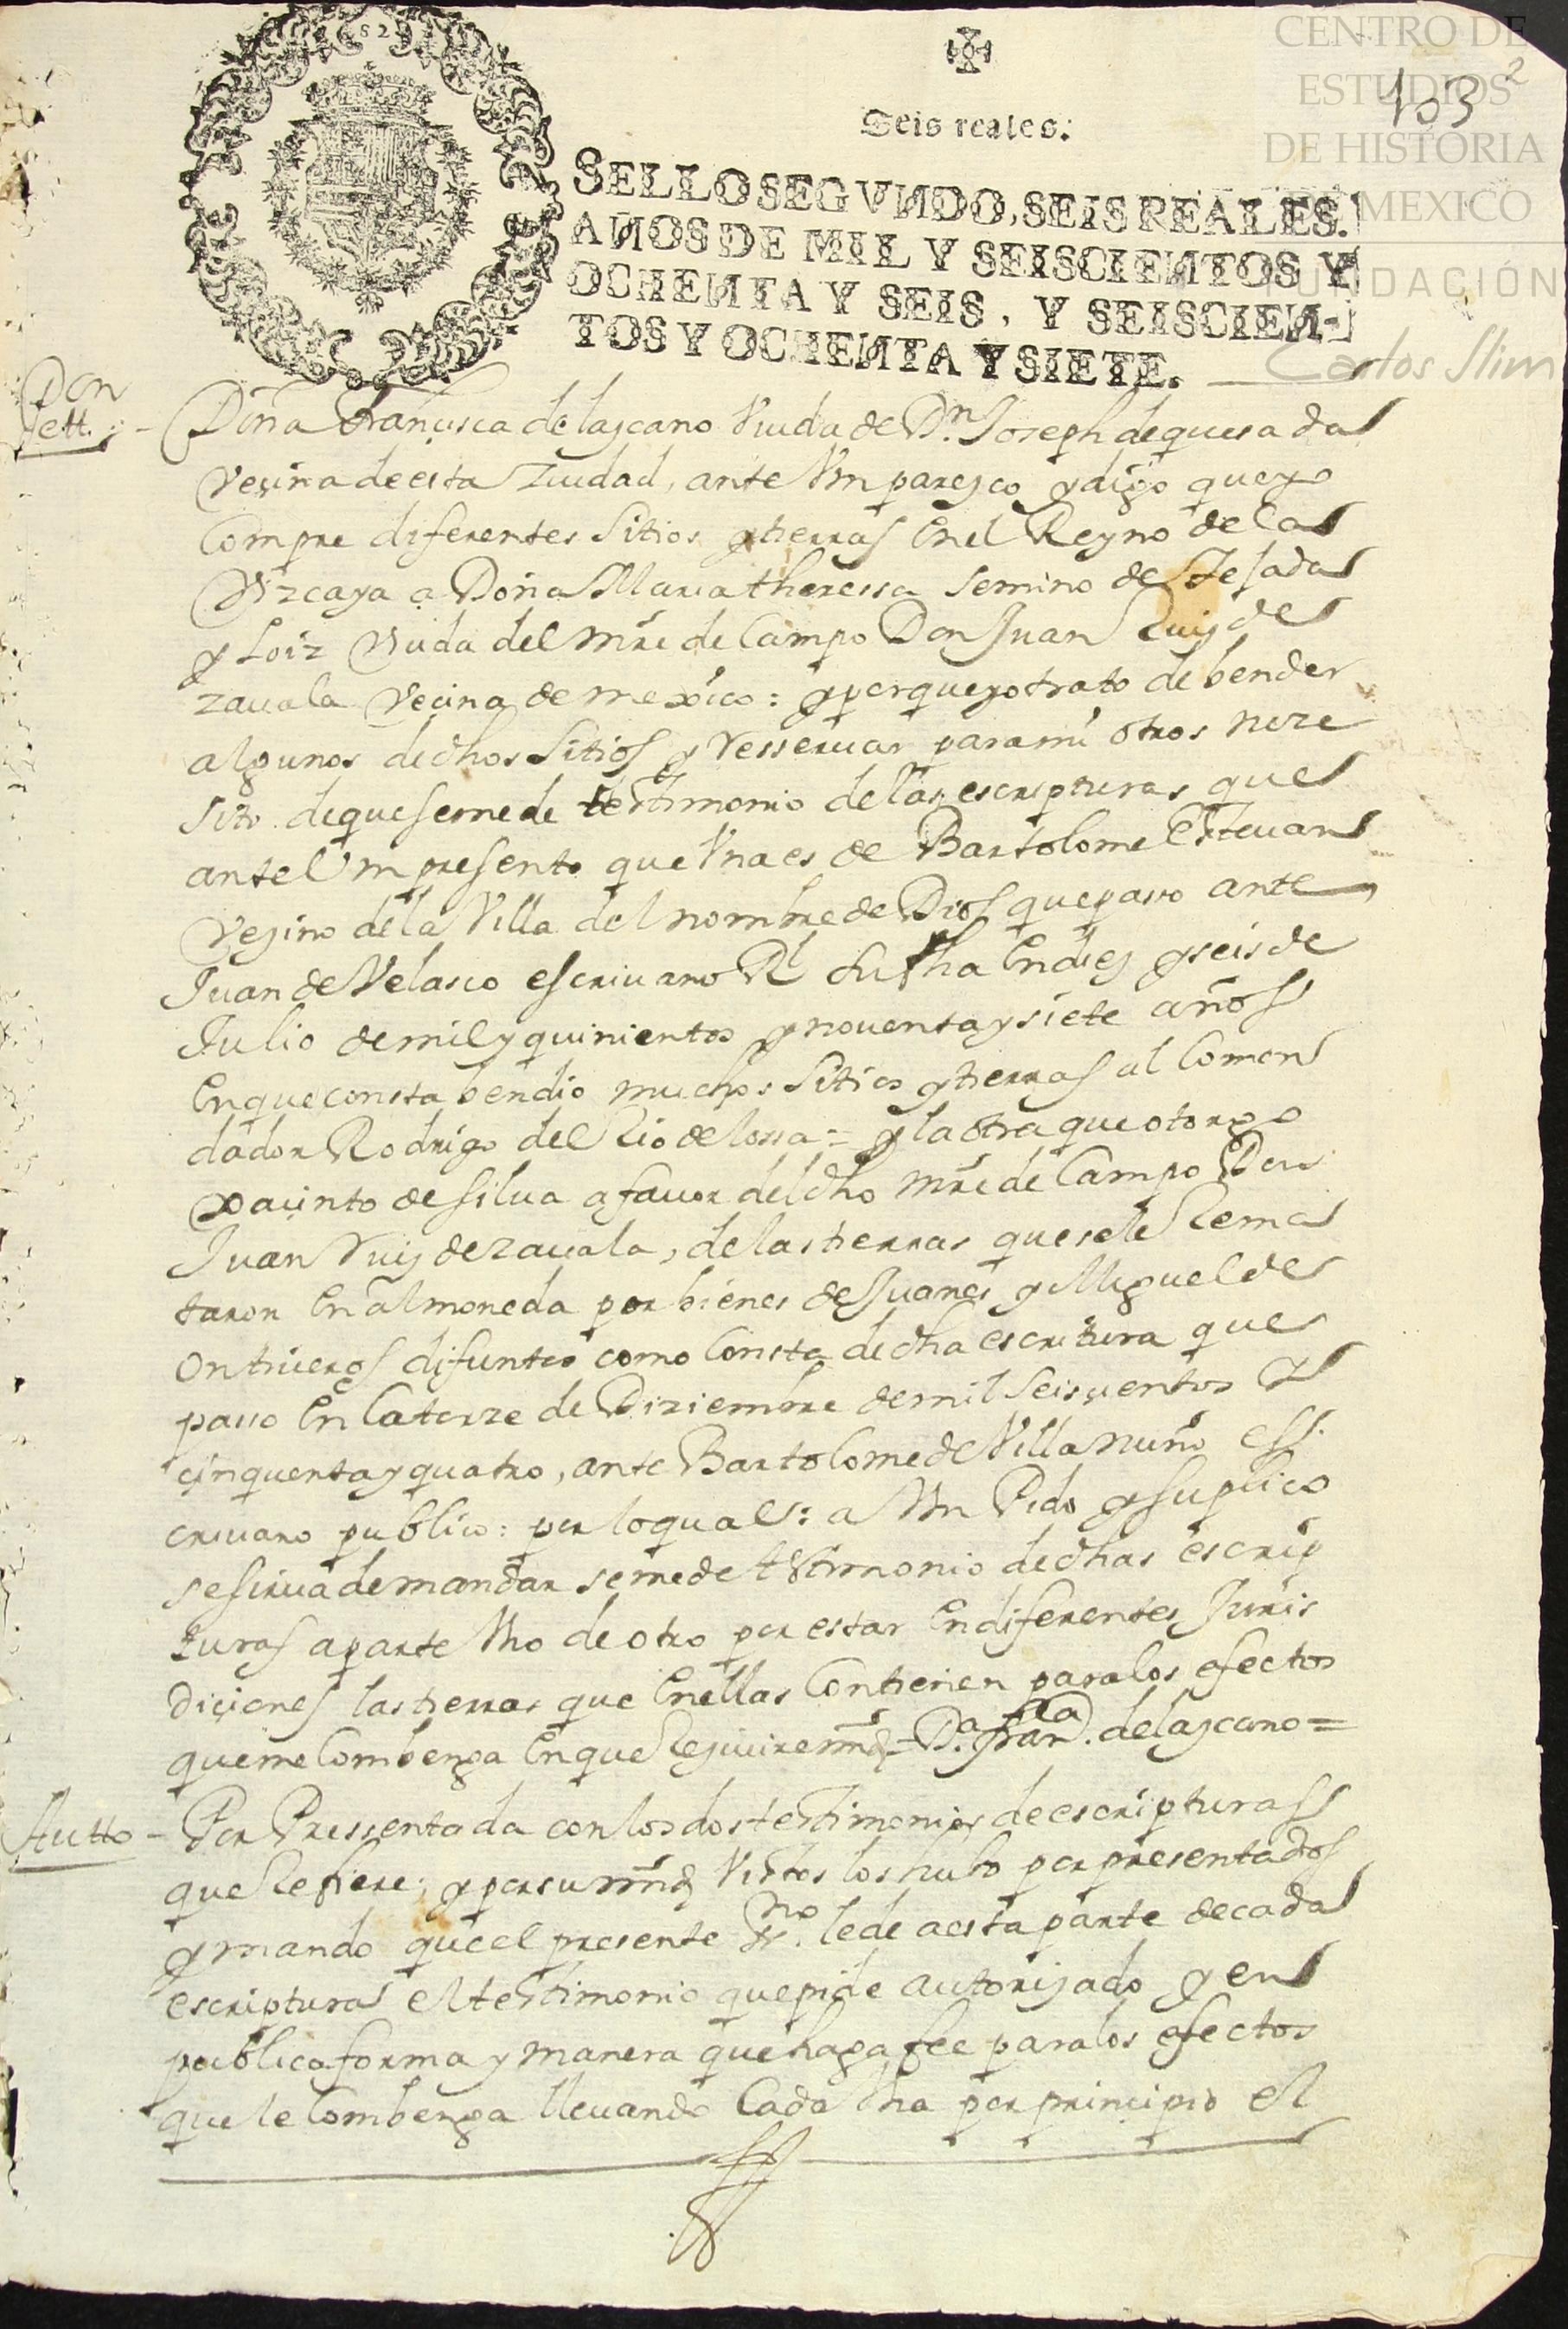 CENTRO DE
ESTUDIOS
DE HISTORIA
DE MEXICO
FUNDACIÓN
Carlos Slim
2
103
Seis reales:
SELLO SEGVNDO, SEIS REALES.
AÑOS DE MIL Y SEISCIENTOS Y
OCHENTA Y SEIS, Y SEISCIEN-
TOS Y OCHENTA Y SIETE.
Pett.
Doña Francisca de lazcano Viuda de Dn. Joseph de quesada
Vezina de esta Ziudad, ante Vm parezco y digo que yo
Compre diferentes Sitios y tierras En el Reyno de la
Vizcaya a Doña Maria theressa Semino de Tesada
y Loiz Viuda del mre de Campo Don Juan Ruiz de
zauala Vecina de mexico: y porque yo trato de bender
algunos de dhos Sitios y Resseruar para mi otros neze
sito de que se me de testimonio de las escripturas que
ante Vm presento que Vna es de Bartolome Esteuan
Vezino de la Villa del nombre de Dios que paso ante
Juan de Velasco escriuano Rl su fha En diez y seis de
Julio de mil y quinientos y nouenta y siete años
En que consta bendio muchos Sitios y tierras al Comen
dador Rodrigo del Rio de lossa = y la otra que otorgo
xacinto de silua a fauor del dho mre de Campo Don
Juan Ruiz de zauala, de las tierras que se le Rema
taron En almoneda por bienes de Juanes y Miguel de
Ontiueros difuntos como Consta de dha escritura que
passo En Catorze de Diziembre de mil Seiscientos y
cinquenta y quatro, ante Bartolome de Villa nuño ess.
criuano publico: por lo qual: a Vm Pido y suplico
se sirua de mandar se me de testimonio de dhas escrip
turas aparte Vno de otro por estar En diferentes Juris
diciones las tierras que En ellas Contienen para los efectos
que me Combenga En que Reziuire mrd = Da. franca. de lazcano =
Autto - Por Pressentada con los dos testimonios de escripturas
que Refiere; y por su mrd Vistos los hubo por presentados
y mando que el presente ssno. le de a esta parte de cada
escriptura el testimonio que pide autorizado y en
publica forma y manera que haga fee para los efectos
que le Combenga lleuando Cada Vna por principio el